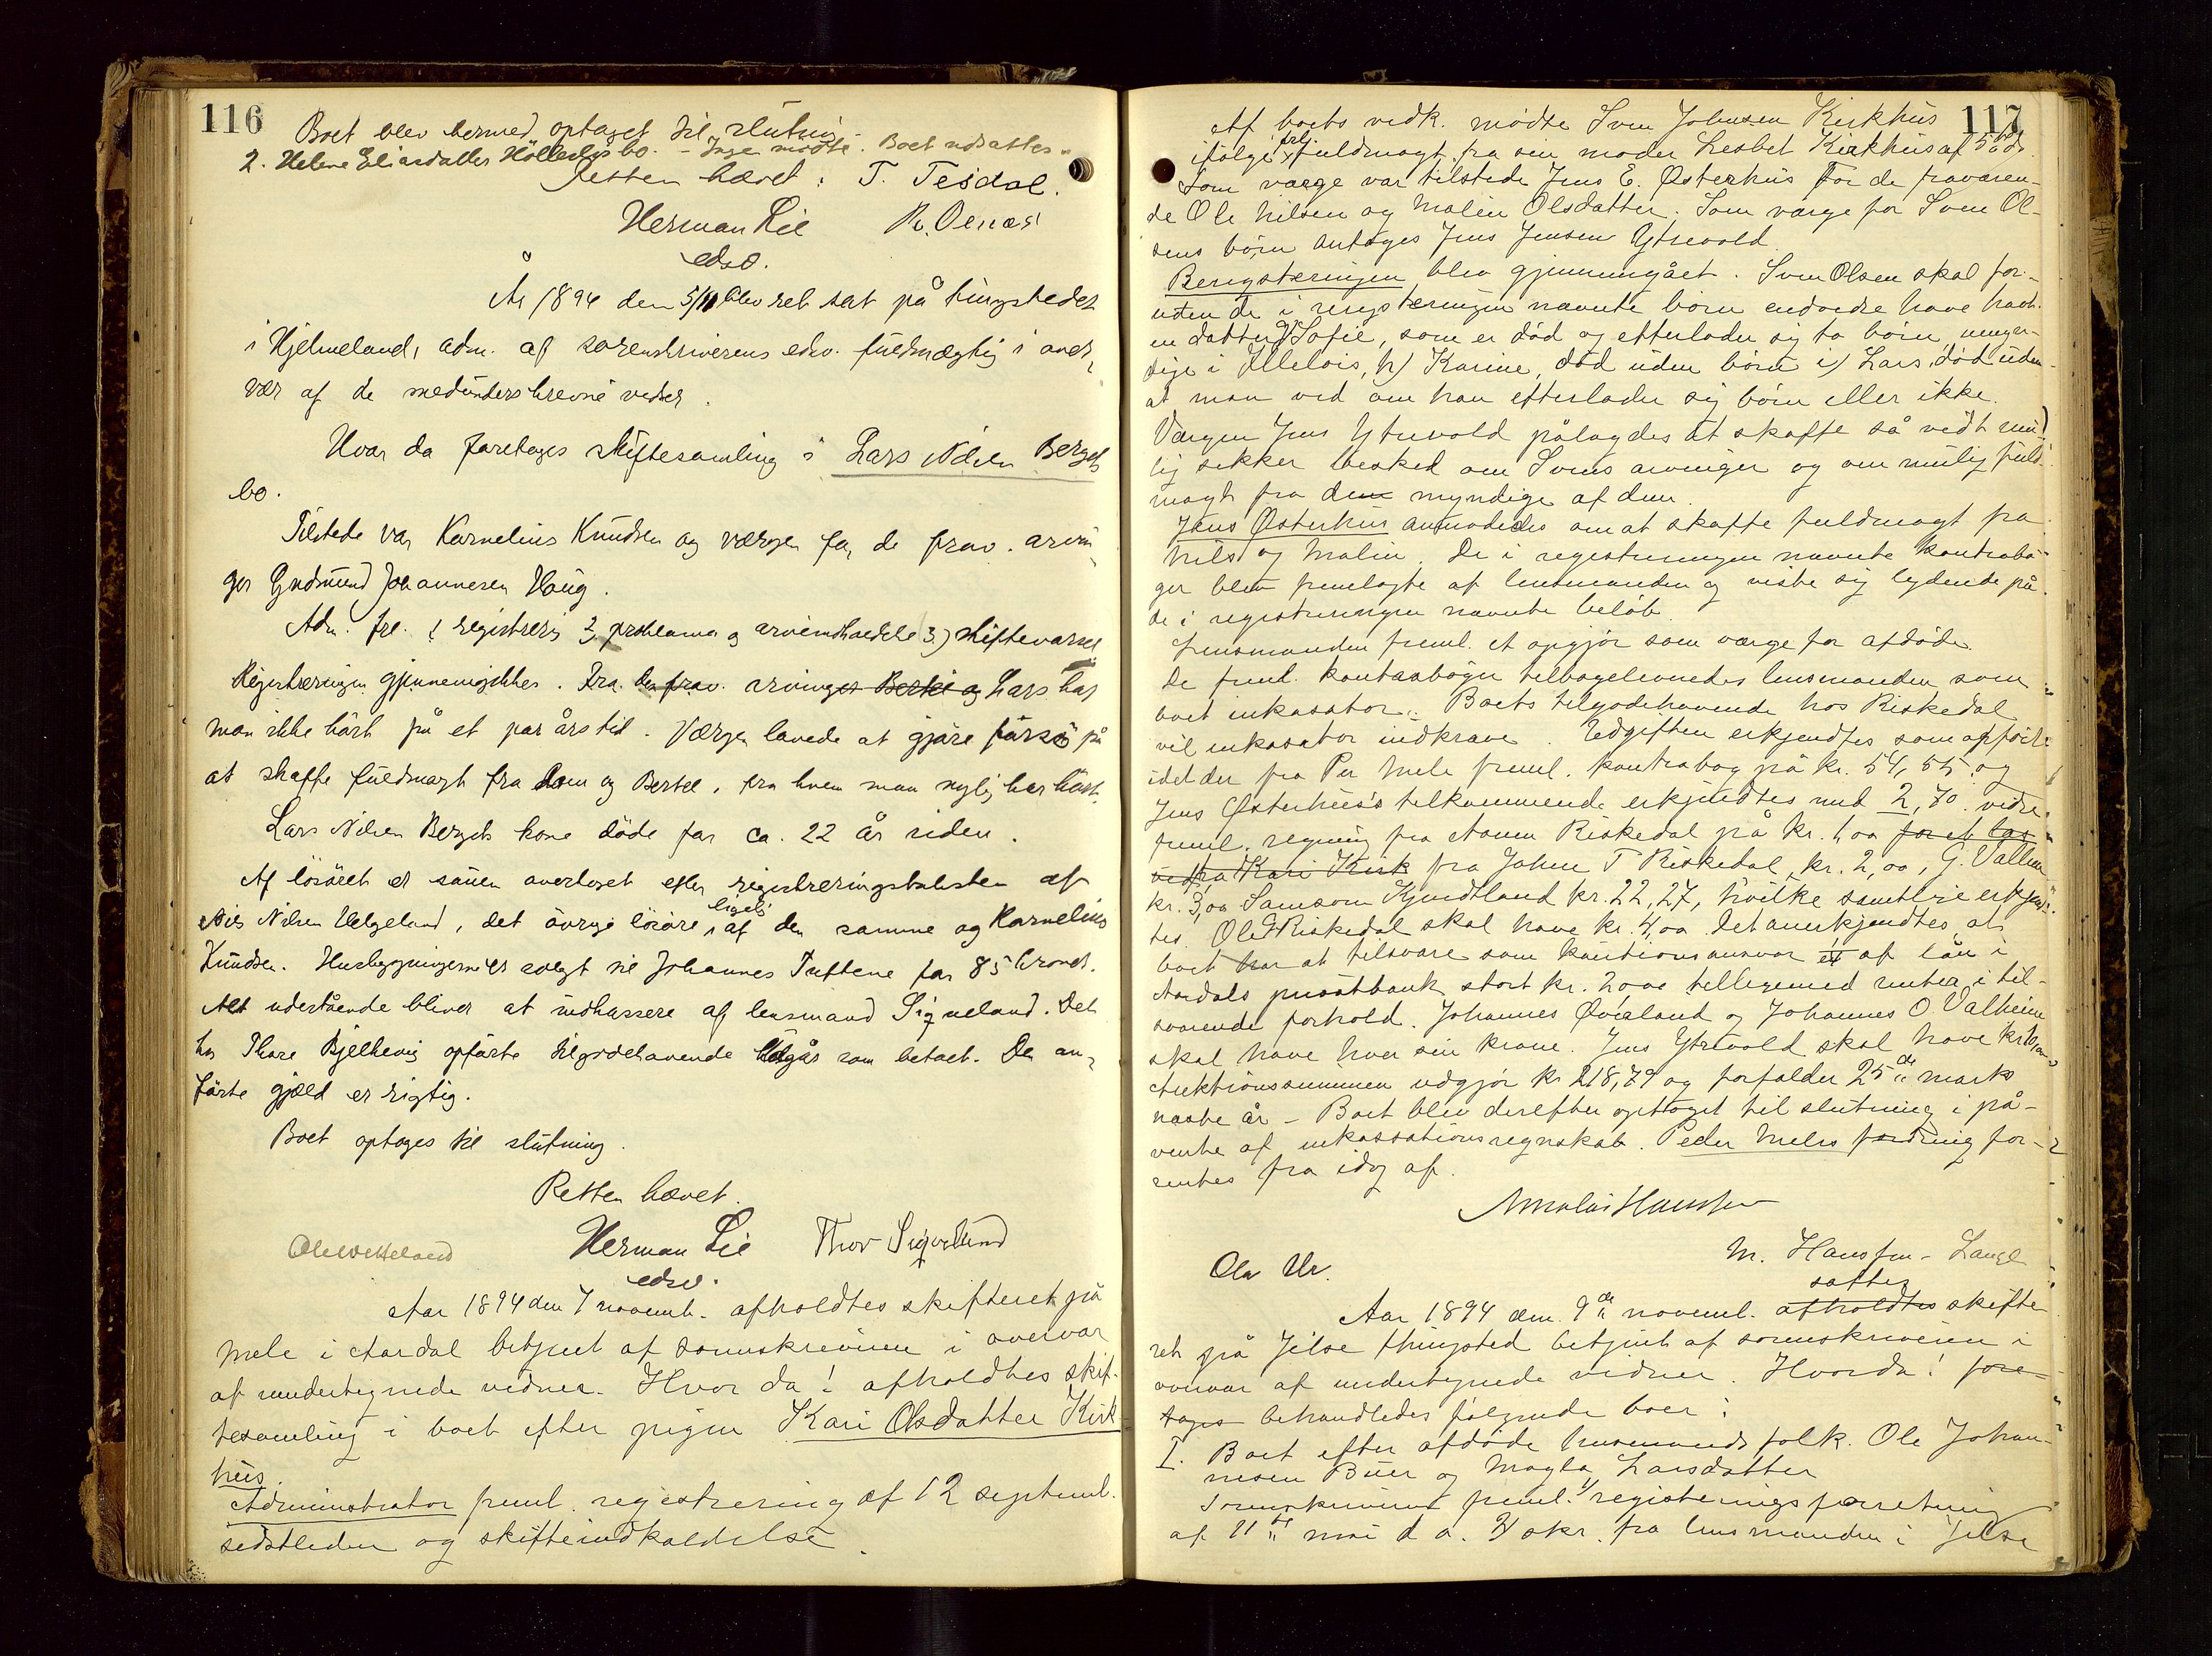 116
Boet blev hermed optaget til slutning.
2. Helene Eliasdatter Hölleslis bo. - Ingen mødte. Boet udsattes.
Retten hævet. T. Tesdal.
Herman Lie R. Oenæs
edsv.
År 1894 den 5/11 blev ret sat på tingstedet
i Hjelmeland, adm. af sorenskriverens edsv. fuldmægtig i over,
vær af de medunderskrevne vidner.
Hvor da foretages skiftesamling i Lars Nilsen Bergets
bo.
Tilstede var Kornelius Knudsen og værgen for de frav. arvin
ger Gudmund Johannesen Haug.
Adm. fre. 1 registrerg 2, proklama og arveindkaldelse 3) skiftevarsel
Registreringen gjennemgikkes. Fra den frav. arvinger Bertel og Lars har
man ikke hört på et par års tid. Værgen lovede at gjøre försög på
at skaffe fuldmagt fra dem og Bertel, fra hvem man nylig har hört.
Lars Nilsen Bergets kone döde for ca. 22 år siden.
Af lösöret er sauen overtaget efter registreringstaksten af
Nils Nilsen Helgeland, det övrige lösöre ligeså af den samme og Kornelius
Knudsen. Husbygningerne er solgt til Johannes Tuftene for 85 kroner.
Alt udestående bliver at indkassere af lensmand Sigveland. Det
hos Thore Bjelkevig opförte tilgodehavende udgår som betalt. Den an,
förte gjæld er rigtig.
Boet optages til slutning.
Retten hævet.
Ole Wekeland Herman Lie Thor Sigveland
edsv.
Aar 1894 den 7 novemb. afholdtes skifteret på
Mele i Aardal betjent af sorenskriveren i overvær
af undertegnede vidner. Hvor da! afholdtes skif-
tesamling i boet efter pigen Kari Olsdatter Kirk-
hus.
Administrator freml. registrering af 12 septemb.
sidstleden og skifteindkaldelse.
117
Af boets vedk. mødte Sven Johnsen Kirkhus
ifølge frlj fuldmagt fra sin moder Lesbet Kirkhus af 5 ds.
Som værge var tilstede Jens E. Østerhus for de fraværen-
de Ole Nilsen og Malin Olsdatter. Som værge for Sven Ol-
sens børn antoges Jens Jensen Ytrevold.
Beregistreringen blev gjennemgået. Sven Olsen skal for-
uden de i registreringen nævnte børn endvidre have havt
en datter g) Sofie, som er död og efterlader sig to børn, mynger-
dige i Illelois, h) Karine, död uden børn i) Lars, död uden
at man ved om han efterlader sig børn eller ikke.
Værgen Jens Ytrevold pålagdes at skaffe så vidt mu-
lig sikker besked om Svens arvinger og om mulig fuld-
magt fra dem myndige af dem.
Jens Østerhus anmodedes om at skaffe fuldmagt fra
Nils og Malin. De i registreringen nævnte kontrabø-
ger blev fremlagte af lensmanden og viste sig lydende på
de i registreringen nævnte beløb.
Lensmanden freml. et opgjør som værge for afdöde.
De freml. kontrabøger tilbageleveredes lensmanden som
boets inkasator. Boets tilgodehavende hos Riskedal
vil inkasator indkræve. Udgiften erkjendtes som opført
idet der fra Per Mele freml. kontrabog på kr. 54,85 og
Jens Østerhus's tilkommende erkjendtes med 2,70. vidre
freml. regning fra Aanen Riskedal på kr. 1,00 for et læs
ved fra Kari Kirk fra Johan T Riskedal kr. 2,00, G. Valheim
kr. 3,00 Samson Kjendtland kr. 22,27, hvilke samtlige erkjend-
tes. Ole Riskedal skal have kr. 4,00. Det anerkjendtes at
boet har at tilsvare som kautionsansvar et af lån i
Aardals privatbank stort kr. 200 tilligemed renter i til-
svarende forhold. Johannes Øverland og Johannes O. Valheim
skal have hver sin krone. Jens Ytrevold skal have kr. 10,00
Auktionssummen udgjør kr 218,79 og forfalder 25de marts
næste år - Boet blev derefter opttaget til slutning i på-
vente af inkassationsregnskab. Peder Meles fordring for-
rentes fra idag af.
Nikolai Hanssen
Ola Ur. M. Hanssen - Lange
sattes
Aar 1894 den 9de novemb. afholdtes skifte
ret på Jelse thingsted betjent af sorenskriveren i
overvær af undertegnede vidner. Hvorda! fore-
tages behandledes følgende boer:
I. Boet efter afdöde husmandsfolk. Ole Johan-
nesen Buer og Magla Larsdatter
Sorenskriveren freml. 1) registeringsforretning
af 11te mai d a. 2) skr. fra lensmanden i Jelse